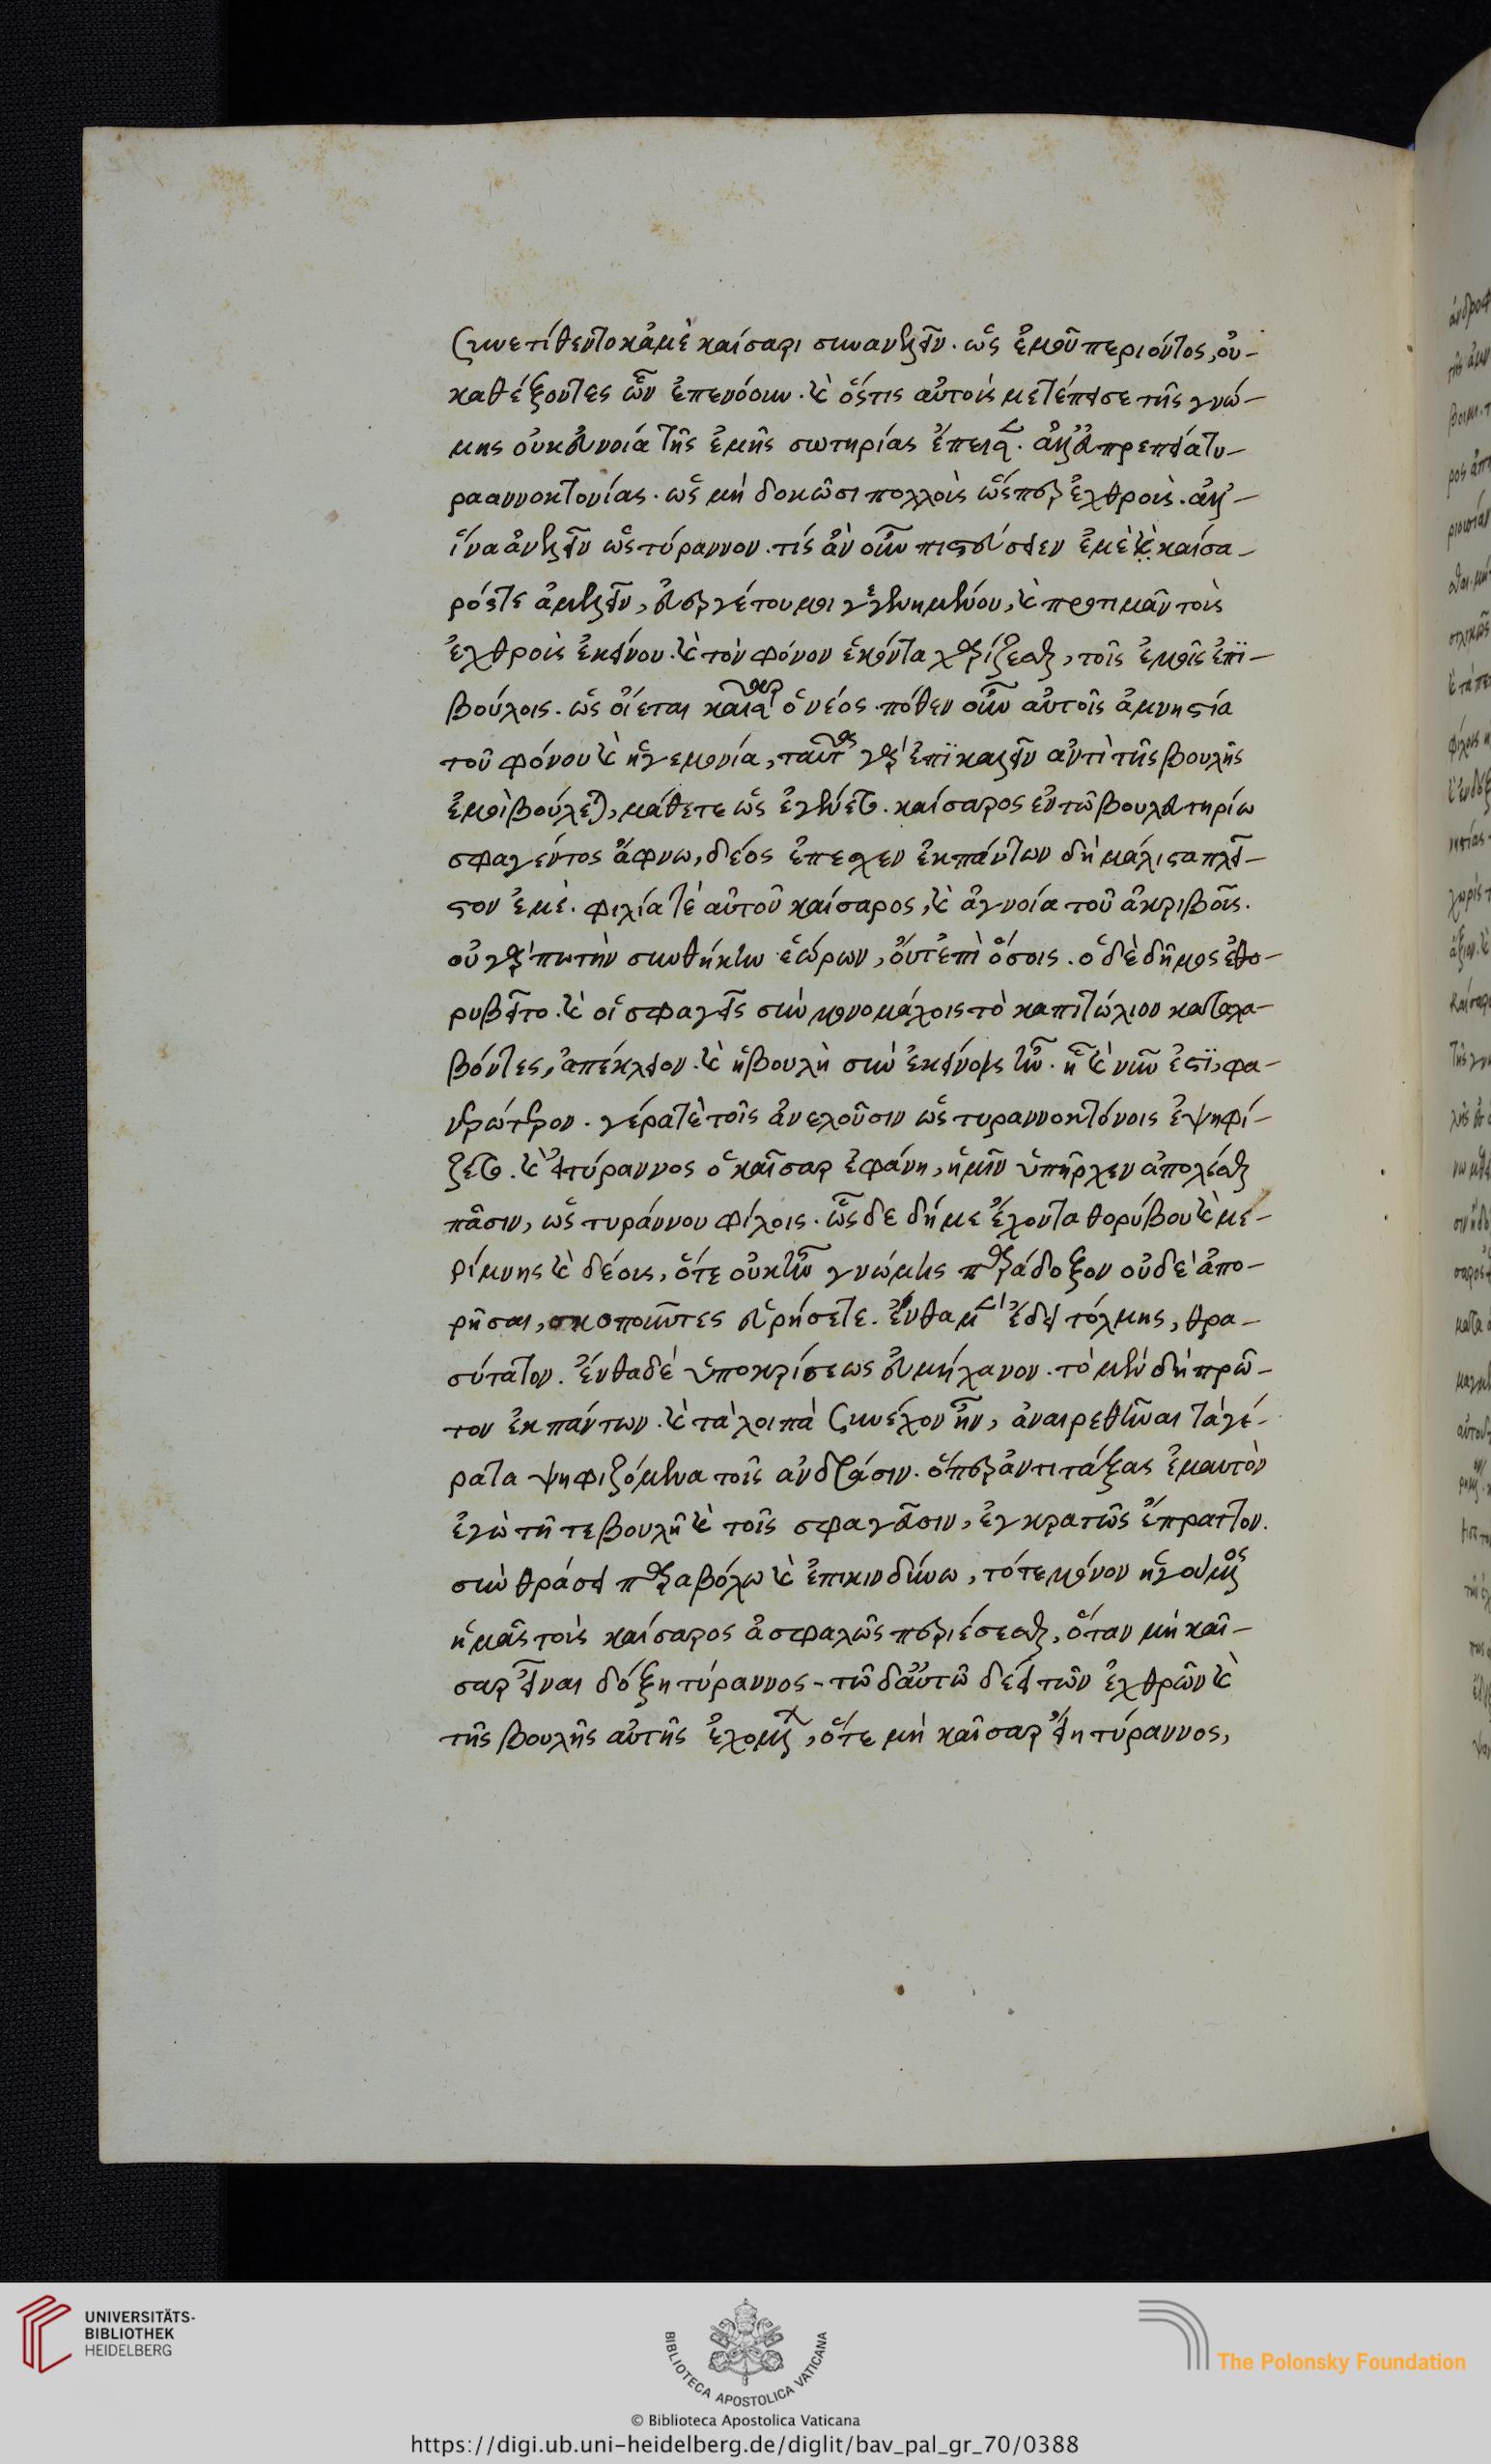 συνετίθεντο κἀμὲ καίσαρι συνανελεῖν. ὡς ἐμοῦ περιόντος, οὐ-
καθέξοντες ὧν ἐπενόουν. καὶ ὅστις αὐτοὺς μετέπεισε τῆς γνώ-
μης οὐκ εὐνοία τῆς ἐμῆς σωτηρίας ἔπεισεν. ἀλλ' εὐπρεπεία τυ-
ραννοκτονίας. ὡς μὴ δοκῶσι πολλοὺς ὥσπερ ἐχθροὺς. ἀλλ'-
ἕνα ἀνελεῖν ὡς τύραννον. τίς ἂν οὖν πιστεύσειεν ἐμὲ καὶ καίσα-
ρός τε ἀμελεῖν, εὐεργέτου μοι γεγενημένου, καὶ προτιμᾶν τοὺς
ἐχθροὺς ἐκείνου. καὶ τὸν φόνον ἑκόντα χαρίζεσθαι, τοῖς ἐμοῖς ἐπϊ-
βούλοις. ὡς οἴεται καῖσαρ ὁ νέος. πόθεν οὖν αὐτοῖς ἀμνηστία
τοῦ φόνου καὶ ἡγεμονία, ταῦτα γὰρ ἐπϊκαλεῖν ἀντὶ τῆς βουλῆς
ἐμοὶ βούλεται, μάθετε ὡς ἐγένετο. καίσαρος ἐν τῶ βουλευτηρίω
σφαγέντος ἄφνω, δέος ἐπεσχεν ἐκπάντων δὴ μάλιστα πλεῖ-
στον ἐμὲ. φιλία τὲ αὐτοῦ καίσαρος, καὶ ἀγνοία τοῦ ἀκριβοῦς.
οὐ γάρ πω τὴν συνθήκην ἑώρων, οὔτ' ἐπὶ ὅσοις. ὁ δὲ δῆμος ἐθο-
ρυβεῖτο. καὶ οἱ σφαγεῖς σὺν μονομάχοις τὸ καπιτώλιον καταλα-
βόντες, ἀπέκλειον. καὶ ἡ βουλὴ σὺν ἐκείνοις ἦν. ἣ καὶ νῦν ἐστϊ, φα-
νερώτερον. γέρα τὲ τοῖς ἀνελοῦσιν ὡς τυραννοκτόνοις ἐψηφί-
ζετο. καὶ εἰ τύραννος ὁ καῖσαρ ἐφάνη, ἡμῖν ὑπῆρχεν ἀπολέσθαι
πᾶσιν, ὡς τυράννου φίλοις. ὧς δε δή με ἔχοντα θορύβου καὶ με-
ρίμνης καὶ δέους, ὅτε οὐκ ἦν γνώμης παράδοξον οὐδὲ ἀπο-
ρῆσαι, σκοποῦντες εὑρήσετε. ἔνθα μὲν ἔδει τόλμης, θρα-
σύτατον. ἔνθα δὲ ὑποκρίσεως εὐμήχανον. τὸ μὲν δὴ πρῶ-
τον ἐκ πάντων. καὶ τὰ λοιπὰ συνέχον ἦν, ἀναιρεθῆναι τὰ γέ-
ρατα ψηφιζόμενα τοῖς ἀνδράσιν. ὅπερ ἀντιτάξας ἐμαυτὸν
ἐγὼ τῆ τε βουλῆ καὶ τοῖς σφαγεῦσιν, ἐγκρατῶς ἔπραττον.
σὺν θράσει παραβόλω καὶ ἐπικινδύνω, τότε μόνον ἡγούμενος
ἡμᾶς τοὺς καίσαρος ἀσφαλῶς περιέσεσθαι, ὅταν μὴ καῖ-
σαρ εἶναι δόξη τύραννος. τῶ δ' αὐτῶ δέει τῶν ἐχθρῶν καὶ
τῆς βουλῆς αὐτῆς ἐχομένης, ὅτε μὴ καῖσαρ εἴη τύραννος,
UNIVERSITÄTS-
BIBLIOTHEK
HEIDELBERG
BIBLIOTECA APOSTOLICA VATICANA
The Polonsky Foundation
© Biblioteca Apostolica Vaticana
https://digi.ub.uni-heidelberg.de/diglit/bav_pal_gr_70/0388